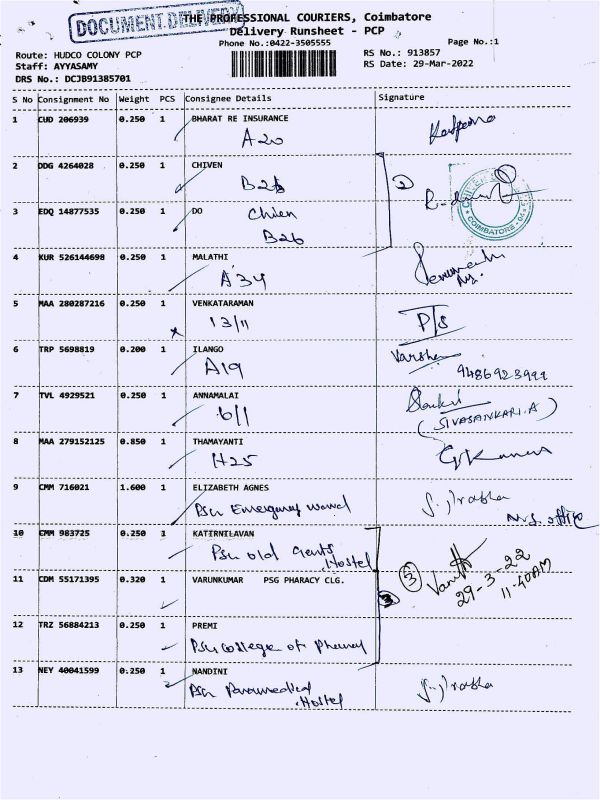 DOCUMENT DELIVERY
THE PROFESSIONAL COURIERS, Coimbatore
Delivery Runsheet - PCP
Phone No.:0422-3505555
Page No.:1
Route: HUDCO COLONY PCP
RS No.: 913857
Staff: AYYASAMY
RS Date: 29-Mar-2022
DRS No.: DCJB91385701
S No Consignment No Weight PCS Consignee Details Signature
1 CUD 206939 0.250 1 BHARAT RE INSURANCE
A20
2 DDG 4264028 0.250 1 CHIVEN
B26
2
COIMBATORE
3 EDQ 14877535 0.250 1 DO
B26
4 KUR 526144698 0.250 1 MALATHI
A34
5 MAA 280287216 0.250 1 VENKATARAMAN
13/11
P/S
6 TRP 5698819 0.200 1 ILANGO
Varsha
A19
7 TVL 4929521 0.250 1 ANNAMALAI
6/1
(SIVASANKARI.A)
8 MAA 279152125 0.850 1 THAMAYANTI
H25
9 CMM 716021 1.600 1 ELIZABETH AGNES
Psg Emergency ward
office
10 CMM 983725 0.250 1 KATIRNILAVAN
Psg old Gents
Hostel
3
29-3-22
11.40AM
11 CDM 55171395 0.320 1 VARUNKUMAR PSG PHARACY CLG.
3
12 TRZ 56884213 0.250 1 PREMI
Psg college of
13 NEY 40041599 0.250 1 NANDINI
Psg Paramedical
Hostel